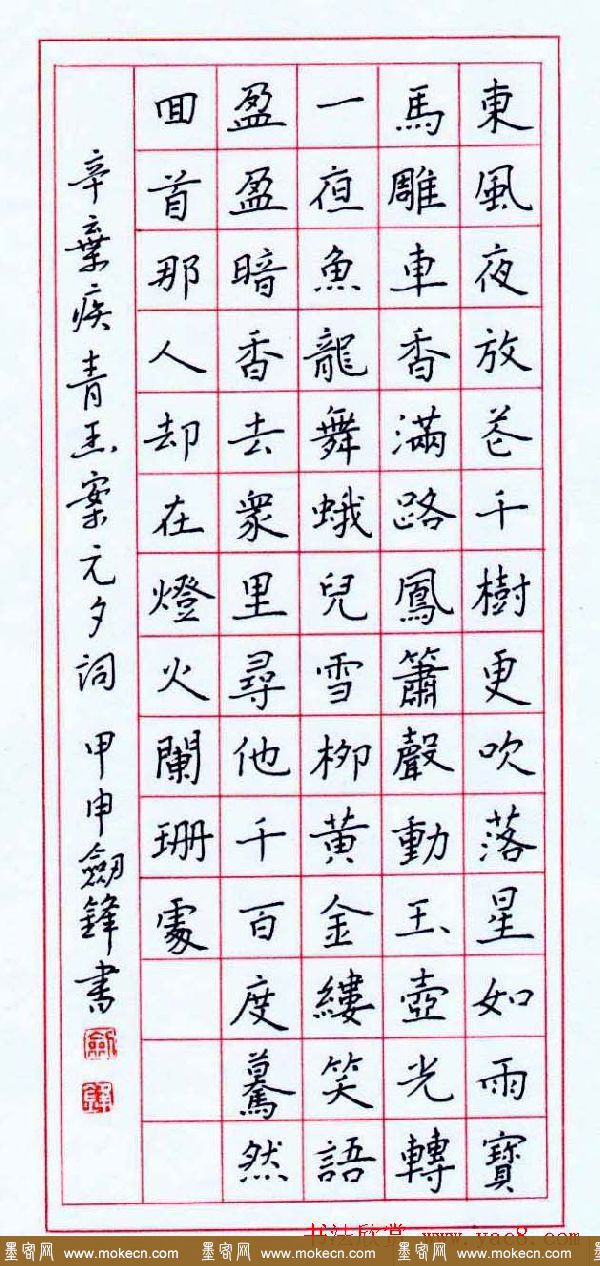 東風夜放花千樹更吹落星如雨寶
馬雕車香滿路鳳簫聲動玉壺光轉
一夜魚龍舞蛾兒雪柳黃金縷笑語
盈盈暗香去衆里尋他千百度驀然
回首那人却在燈火闌珊處
辛棄疾青玉案元夕詞 甲申劍鋒書
劍
鋒
书法欣赏 www.yac8.com
墨客网 www.mokecn.com 墨客网 www.mokecn.com 墨客网 www.mokecn.com